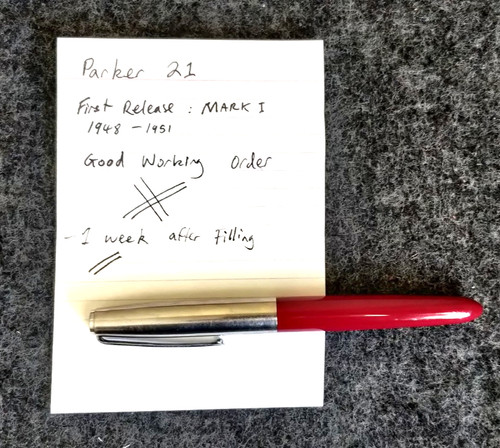 Parker 21
First Release : MARK I
1948 - 1951
Good Working Order
- 1 week after filling